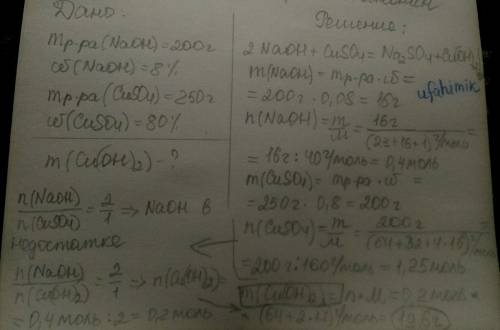 Дано:
mр-ра(NaOH)=200г
ω(NaOH)=8%
mр-ра(CuSO4)=250г
ω(CuSO4)=80%
m(Cu(OH)2)-?
n(NaOH)/n(CuSO4)=2/1 => NaOH в
недостатке
n(NaOH)/n(Cu(OH)2)=2/1 => n(Cu(OH)2)=
=0,4моль:2=0,2моль
Решение:
2NaOH+CuSO4=Na2SO4+Cu(OH)2
m(NaOH)=mр-ра·ω=
ufahimik
=200г·0,08=16г
n(NaOH)=m/M=16г/(23+16+1)г/моль=
=16г:40г/моль=0,4моль
m(CuSO4)=mр-ра·ω=
=250г·0,8=200г
n(CuSO4)=m/M=200г/(64+32+4·16)г/моль=
=200г:160г/моль=1,25моль
m(Cu(OH)2)=n·M=0,2моль·
·(64+2·17)г/моль=19,6г